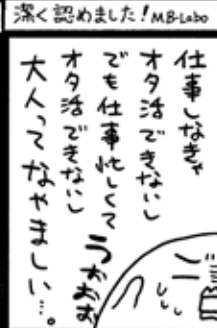 潔く認めました！MB-Labo
仕事しなきゃ
オタ活できないし
でも仕事忙しくて
オタ活できないし
大人ってなやましい…。
うおおお